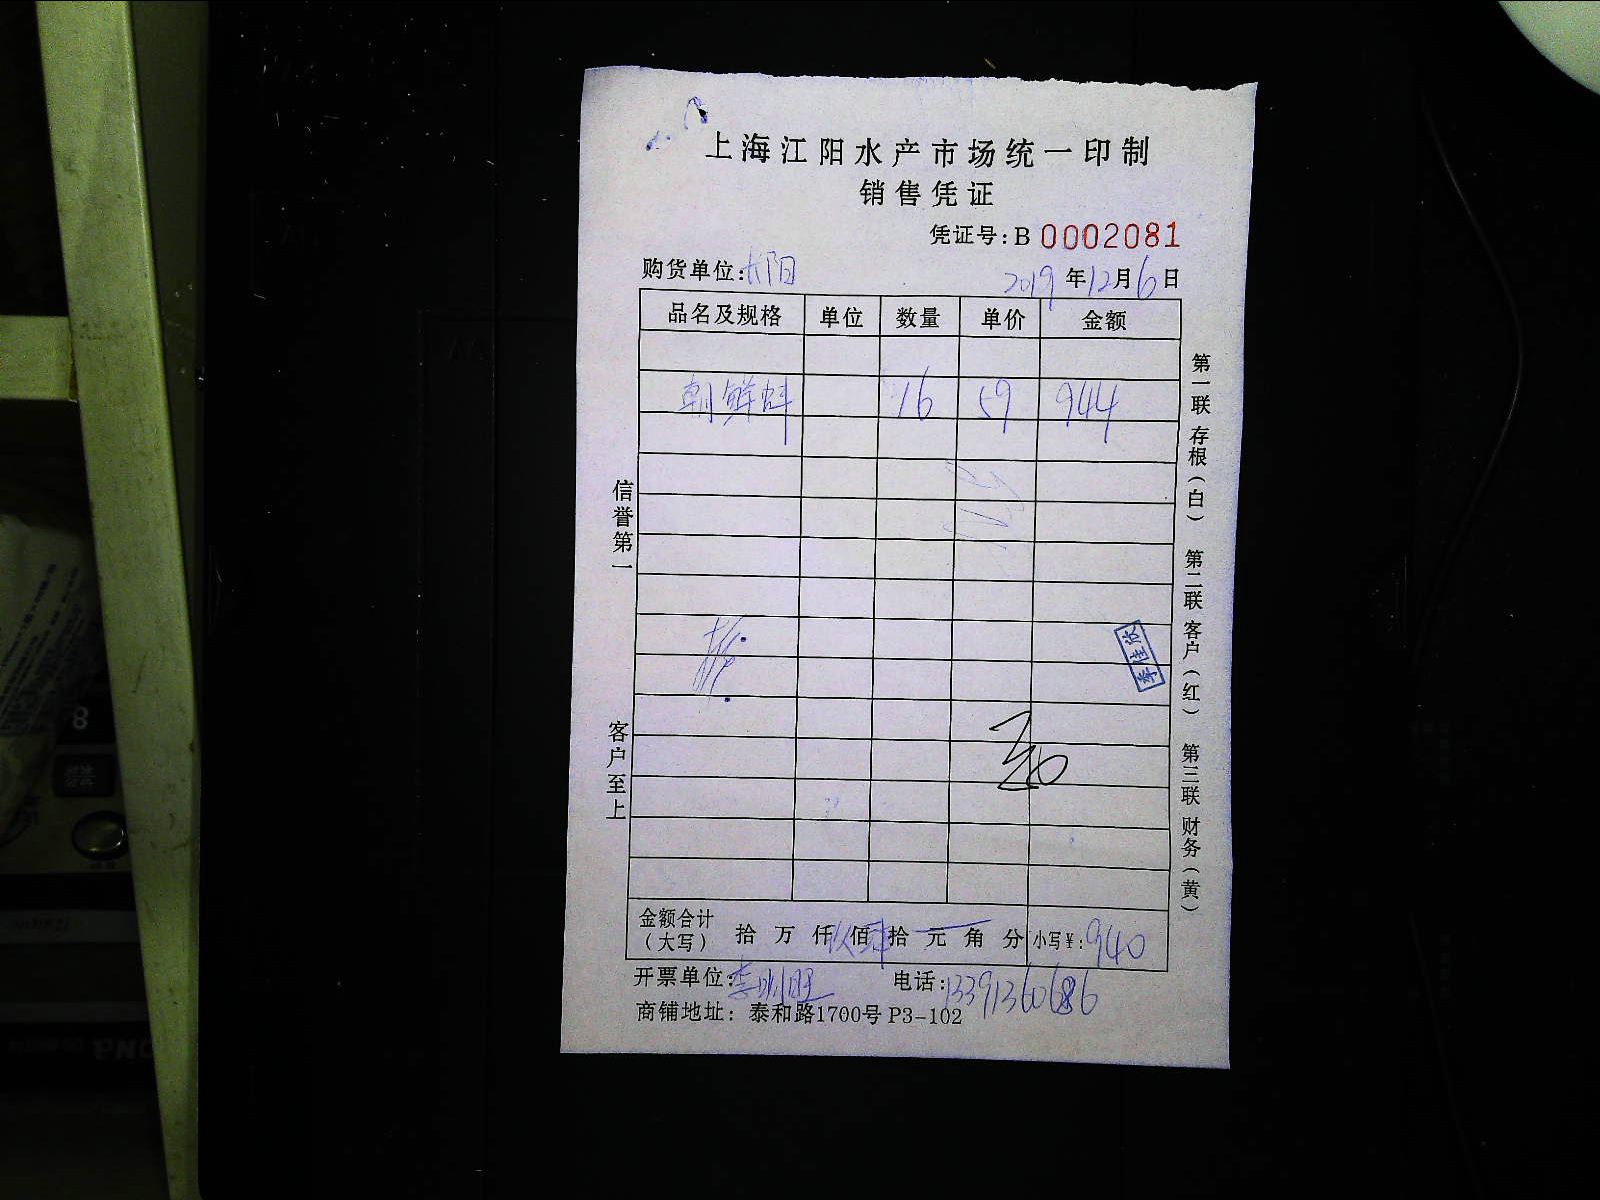 上海江阳水产市场统一印制
销售凭证
凭证号:B 0002081
购货单位:长阳 2019年12月6日
品名及规格 单位 数量 单价 金额
朝鲜蚌 16 59 944
信誉第一
客户至上
第一联 存根(白) 第二联 客户(红) 第三联 财务(黄)
李佳欣
金额合计(大写) 拾 万 仟 玖佰 肆拾 元 角 分 小写¥:940
开票单位:李明旺 电话:13391360686
商铺地址:泰和路1700号 P3-102